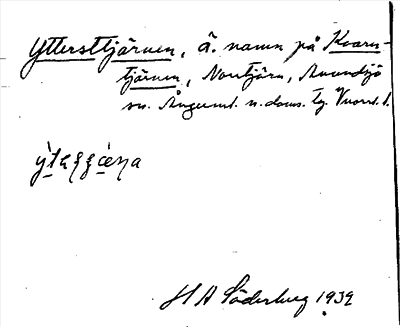 Yttersttjärnen, ä. namn på Kvarn-
tjärnen, Norrtjärn, Anundsjö
sn. Ångerml. n. doms. tg. V norrl. l.
H A Söderberg 1939